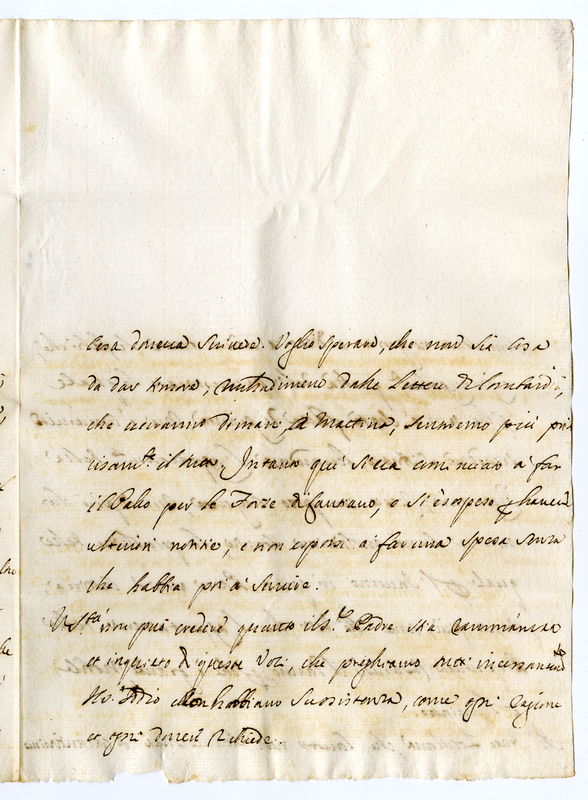 Cosa doveva scrivere. Voglio sperare, che non sia cosa
da dar timore, nulladimeno dalle lettere di Lombardia,
che veranno diman, a mattina, sentiremo più pre
cisam.te il tutto. Intanto qui si era cominciato a far
il Palio per le Forze di e si è sospeso haver
ulteriori notitie, e non esporsi a far una spesa senza
che habbia poi a servire.
V.S. non può credere quanto il S.r Padre stia
et inquieto queste Voci, che preghiamo tutti incessantem.te
Idio non habbiano sussistenza, come ogni ragione
et ogni dover richiede.